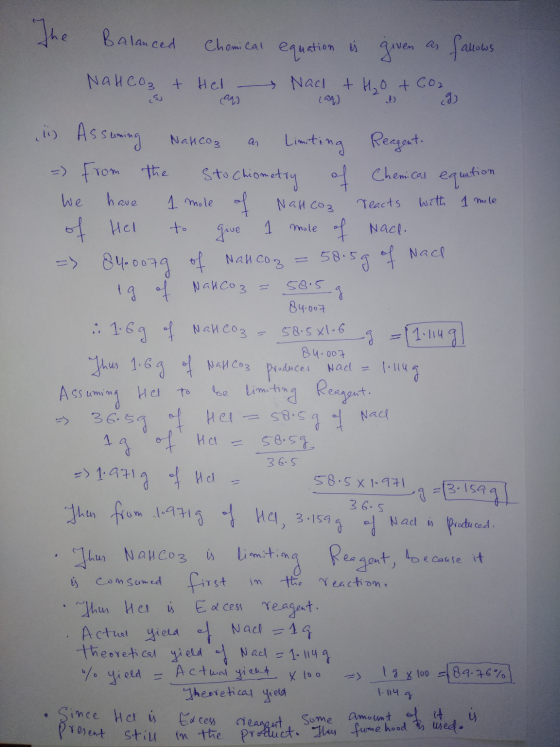 The Balanced Chemical equation is given as follows
NaHCO3 + HCl ⟶ NaCl + H2O + CO2
(s) (aq) (aq) (l) (g)
ii) Assuming NaHCO3 as Limiting Reagent.
=> From the Stochiometry of Chemical equation
We have 1 mole of NaHCO3 reacts with 1 mole
of HCl to give 1 mole of NaCl.
=> 84.007g of NaHCO3 = 58.5g of NaCl
1g of NaHCO3 = 58.5/84.007 g
∴ 1.6g of NaHCO3 = 58.5 x 1.6/84.007 g = 1.114g
Thus 1.6g of NaHCO3 produces NaCl = 1.114g
Assuming HCl to be limiting Reagent.
=> 36.5g of HCl = 58.5g of NaCl
1g of HCl = 58.5g/36.5
=> 1.971g of HCl = 58.5 x 1.971/36.5 g = 3.159g
Thus from 1.971g of HCl, 3.159g of NaCl is produced.
• Thus NaHCO3 is limiting Reagent, because it
is consumed first in the reaction.
• Thus HCl is Excess reagent.
. Actual yield of NaCl = 1g
theoretical yield of NaCl = 1.114g
% yield = Actual yield/Theoretical yield x 100 => 1g x 100/1.114g = 89.76%
• Since HCl is Excess reagent, Some amount of it is
present still in the product. Thus fumehood is used.